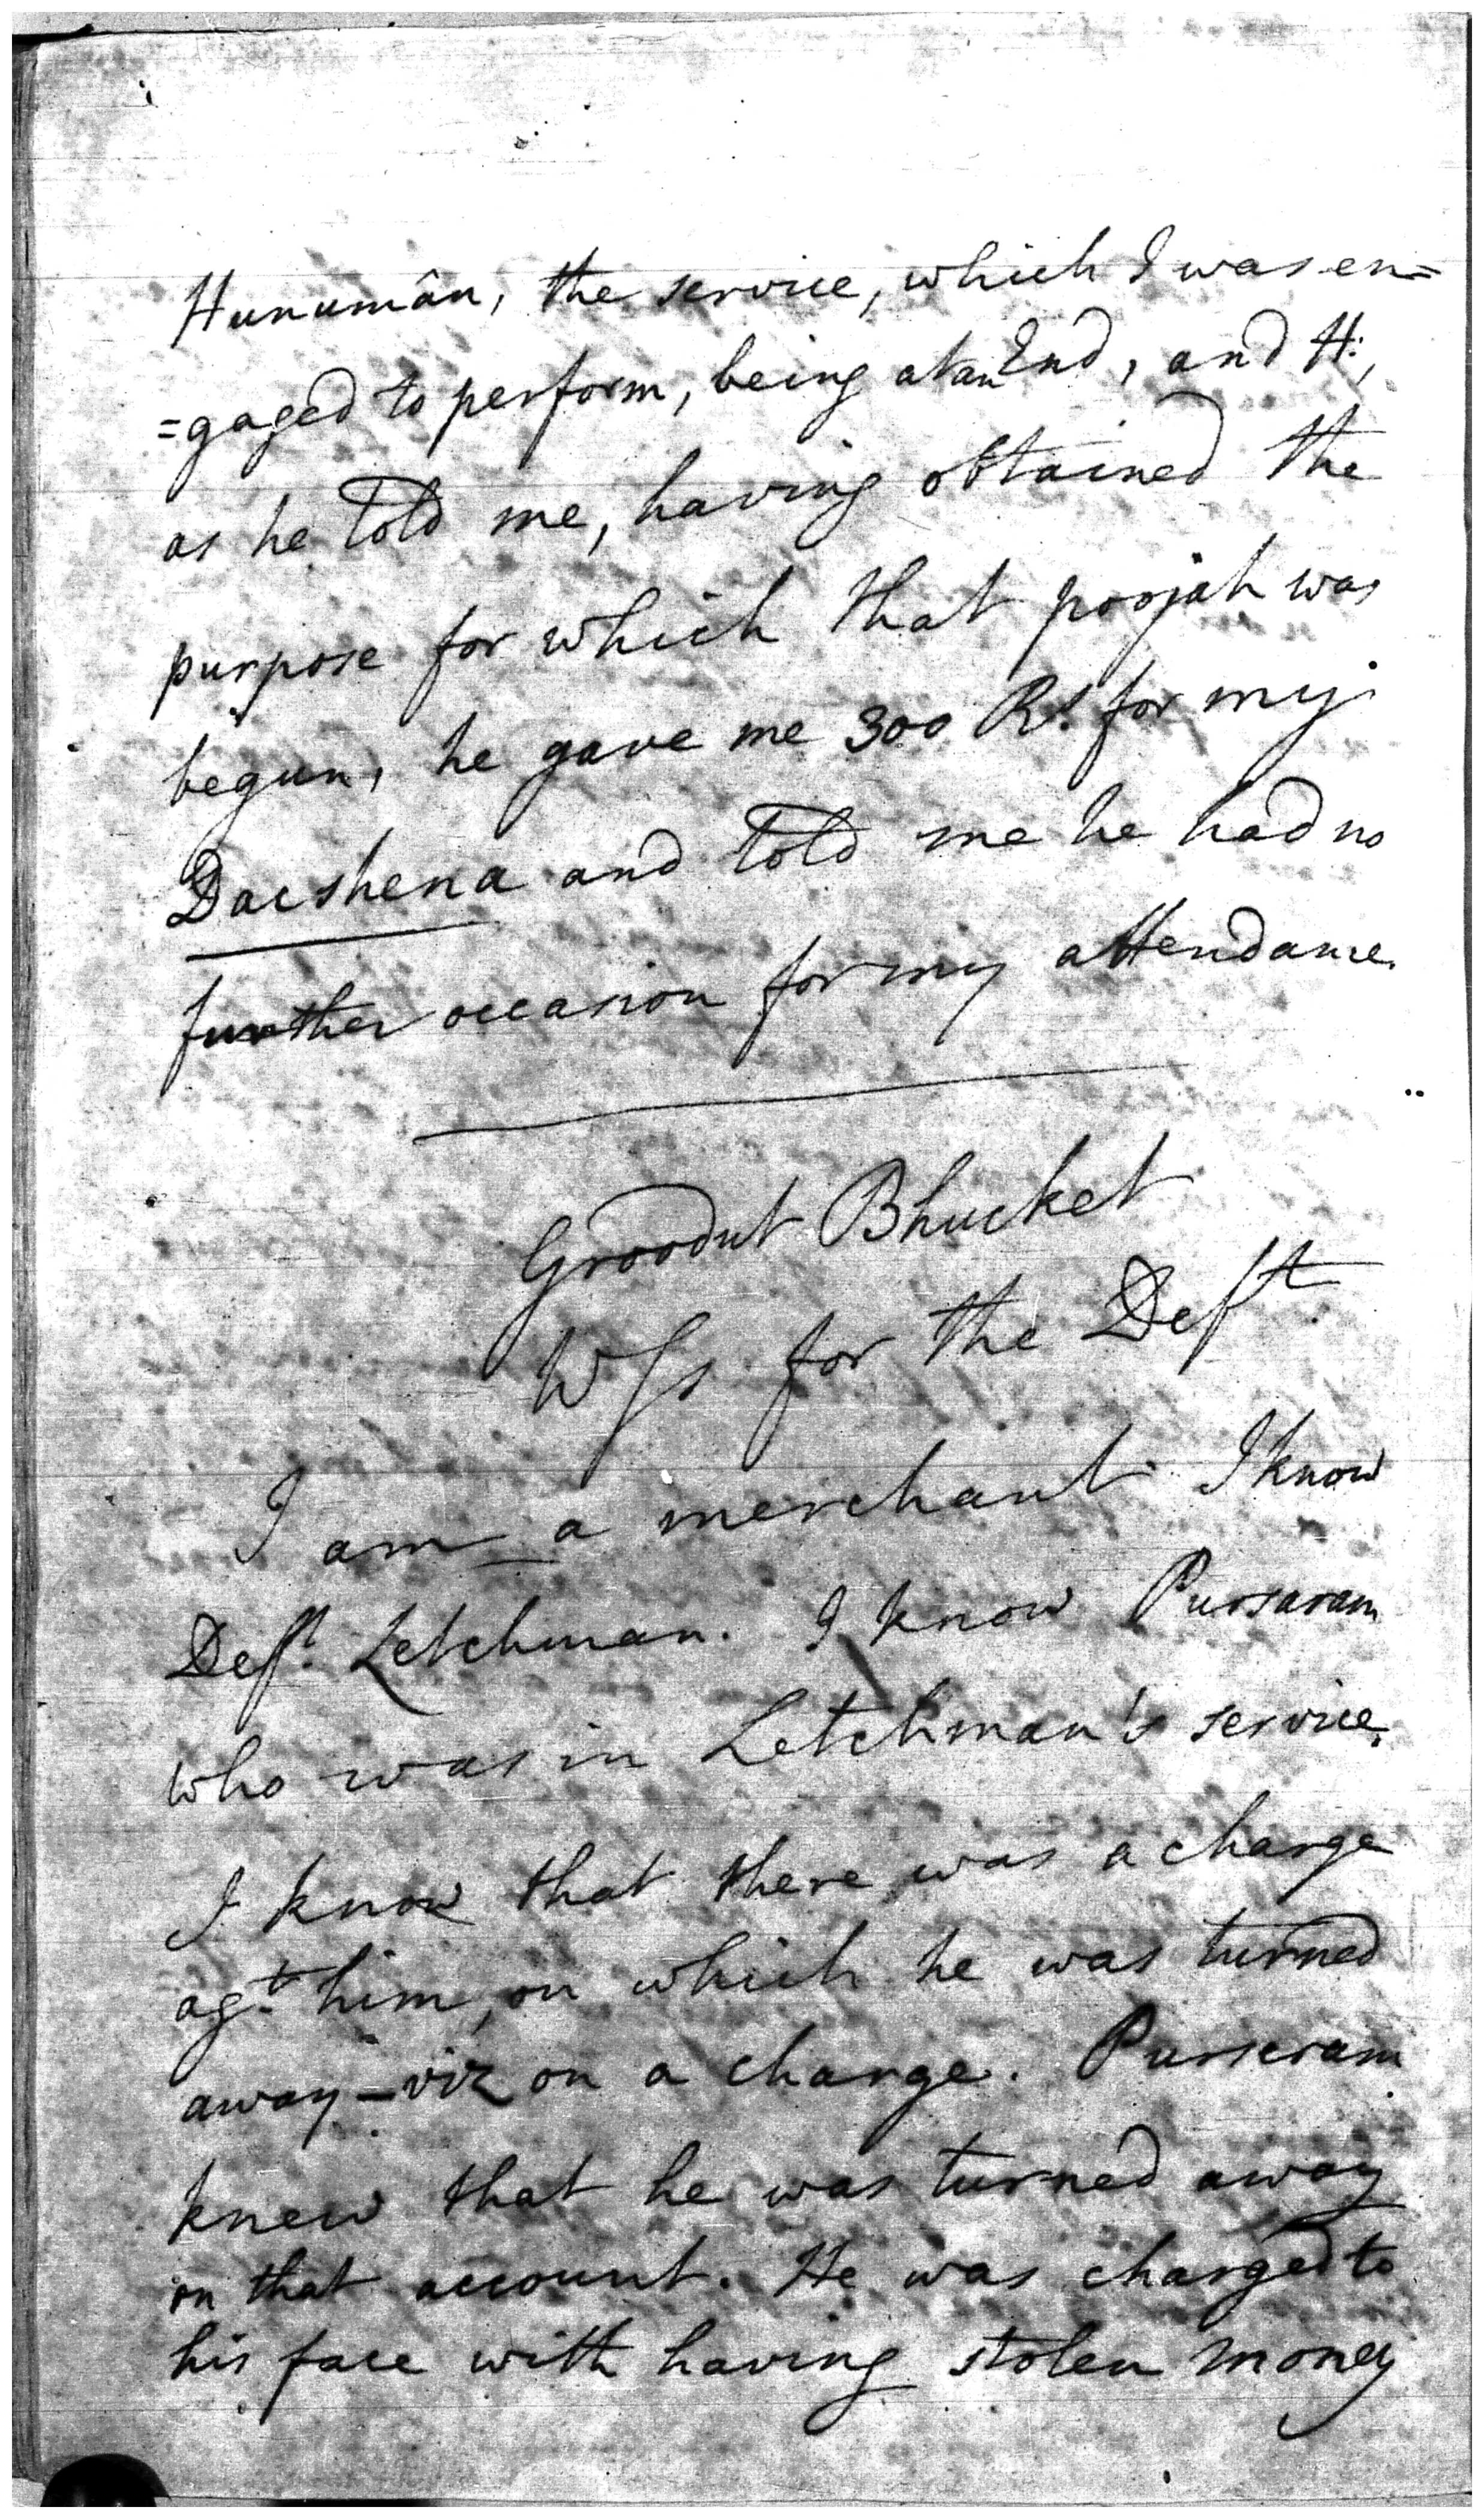 Hunumân, the service, which I was en=
=gaged to perform, being at an End, and H:,
as he told me, having obtained the
purpose for which that poojah was
begun, he gave me 300 Rs. for my
Dacshena and told me he had no
further occasion for my attendance.
Groodut Bhucket
Wss for the Deft
I am a merchant I know
Deft. Letchman. I know Pursaram
who was in Letchman's service.
I know that there was a charge
agt. him, on which he was turned
away - viz on a charge. Purseram
knew that he was turned away
on that account. He was charged to
his face with having stolen money